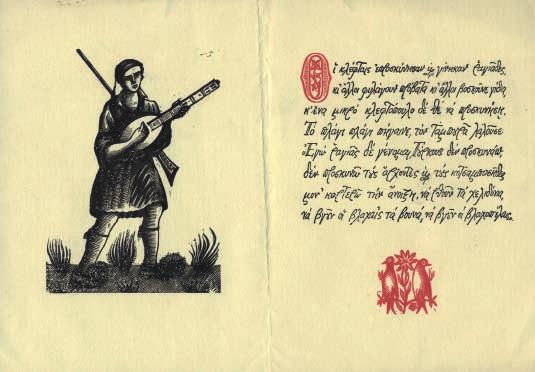 Οἱ κλέφταις ἐπροσκύνησαν καὶ γίνηκαν ῥαγιάδες,
κι ἄλλοι φυλάγουν πρόβατα κι ἄλλοι βοσκοῦνε γίδια
κ' ἕνα μικρὸ κλεφτόπουλο δὲ θὲ νὰ προσκυνήση.
Τὸ πλάγι πλάγι πήγαινε, τὸν ταμπουρᾶ λαλοῦσε
Ἐγὼ ῥαγιᾶς δὲ γένομαι, Τούρκους δὲν προσκυνάω,
δὲν προσκυνῶ τοὺς ἄρχοντες καὶ τοὺς κοτσαμπασῆδες
μον' καρτερῶ τὴν ἄνοιξη, νὰ ρθοῦν τὰ χελιδόνια
νὰ βγοῦν οἱ βλάχαις τὰ βουνά, νὰ βγοῦν οἱ βλαχοποῦλαις.